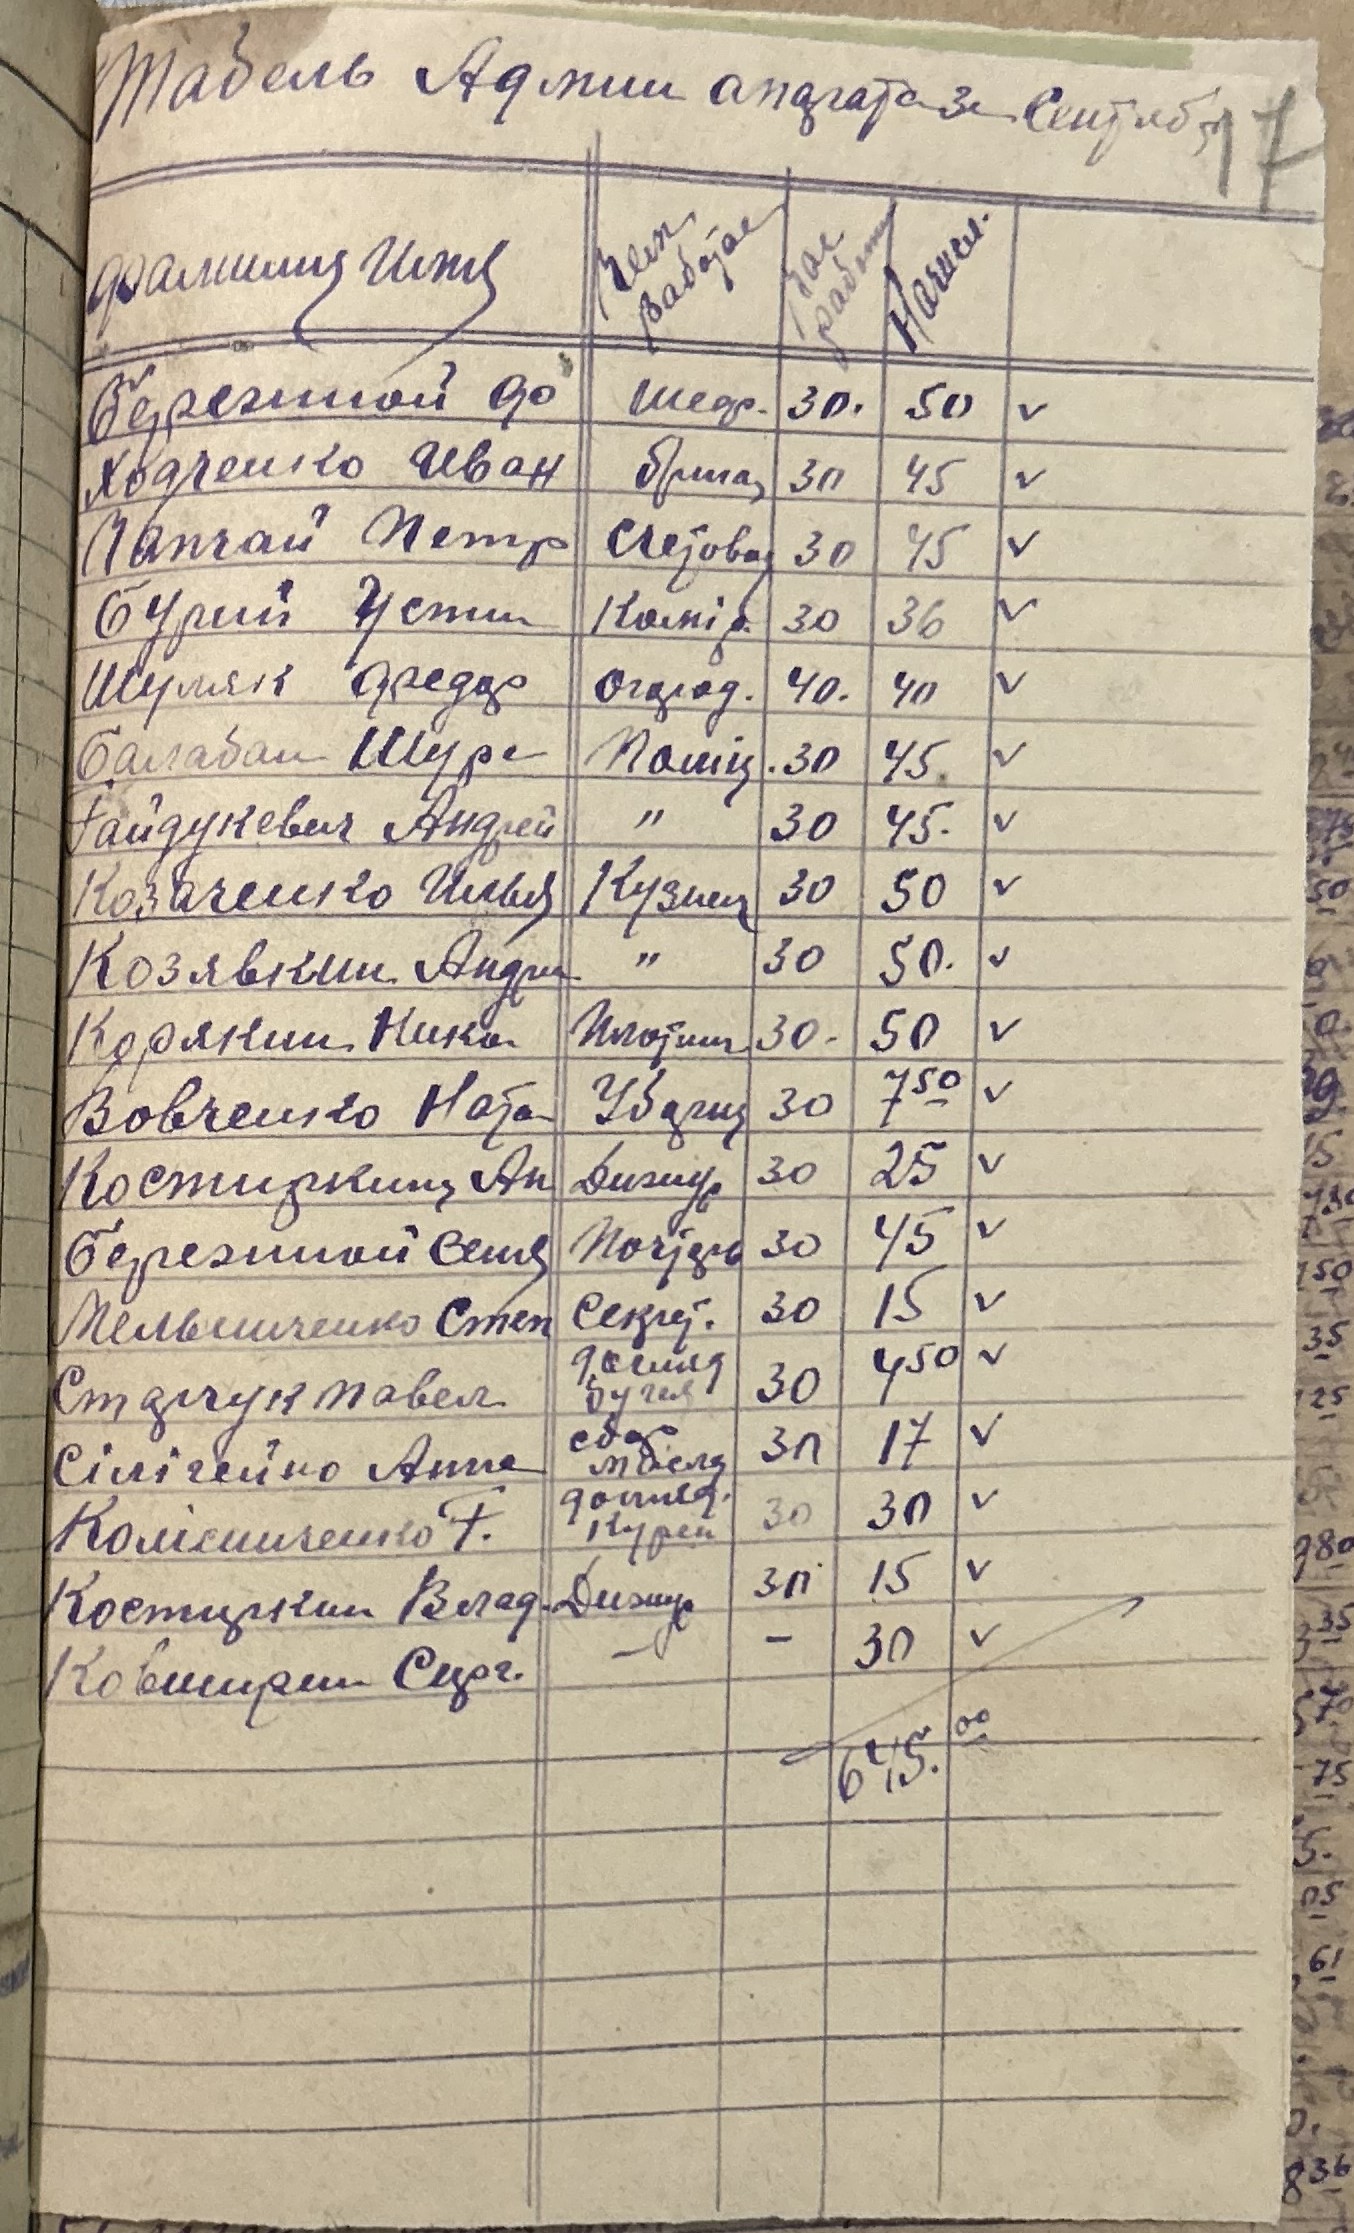 Табель Админ аппарата за Сентябр
17
Фамилия Имя Кем работае Час работы Начисл.
Бережной Фо Шеф. 30. 50 ✓
Ходченко Иван Бригад 30 45 ✓
Чапчай Петр Счетовод 30 45 ✓
Бурий Устин Комір. 30 36 ✓
Шумяк Федор Огород. 40. 40 ✓
Балабан Шура Поміщ. 30 45. ✓
Гайдукевич Андрей " 30 45. ✓
Козаченко Илья Кузнец 30 50 ✓
Козявкин Андрей " 30 50. ✓
Корякин Никол Плотник 30. 50 ✓
Вовченко Ната Уборщ 30 7 50 ✓
Костиркина Ан Дижур 30 25 ✓
Бережной Сеня 30 45 ✓
Мельниченко Степ Секрет. 30 15 ✓
Стадчук Павел догляд бугая 30 4 50 ✓
Сілігейно Анна сбор масла 30 17 ✓
Колісниченко Т. догляд. Курей 30 30 ✓
Костиркин Влад. Дижур 30 15 ✓
Ковширин Серг. — – 30 ✓
645.00